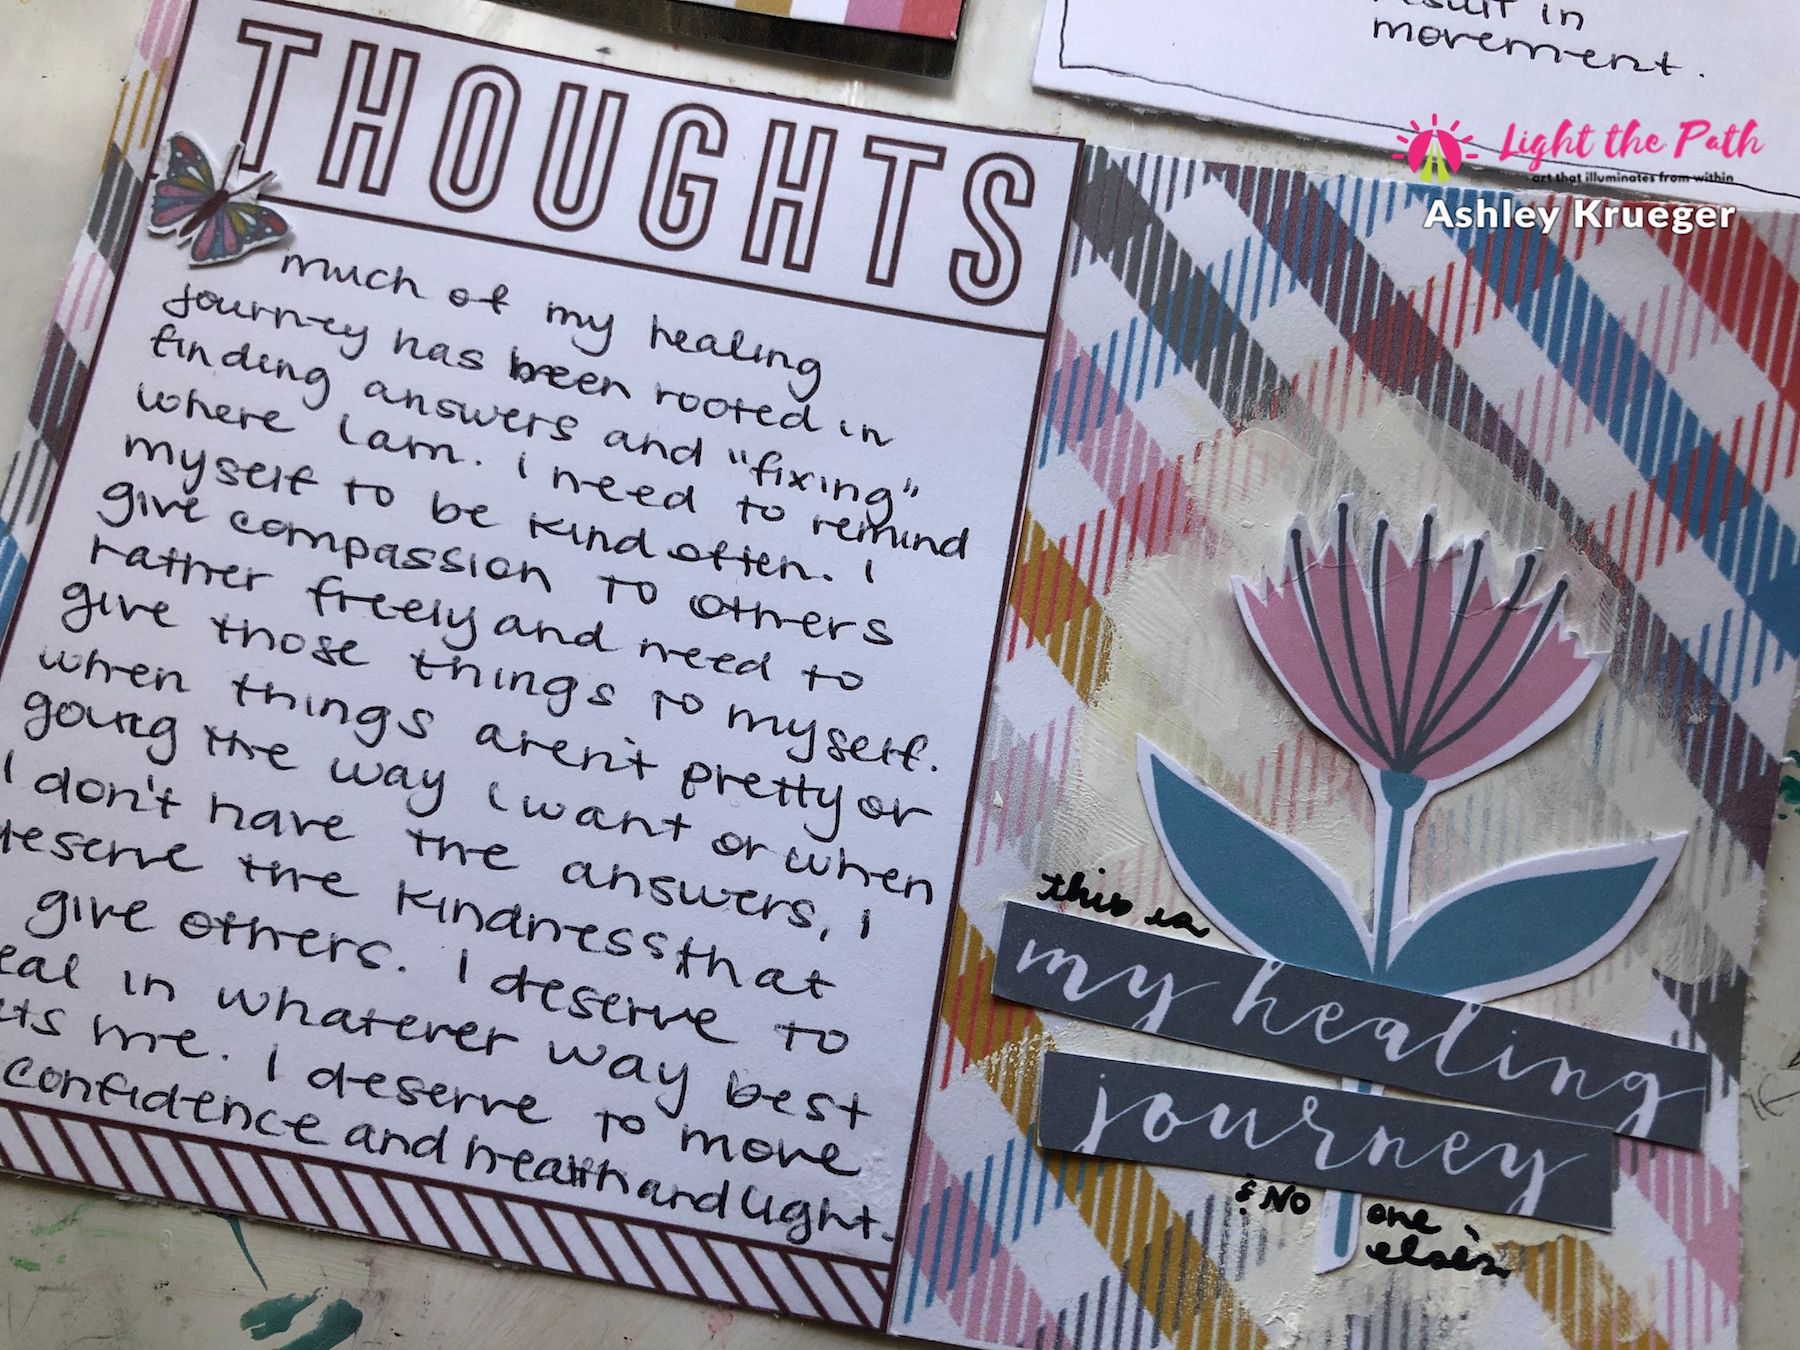 result in
movement.
Light the Path
art that illuminates from within
Ashley Krueger
THOUGHTS
much of my healing
journey has been rooted in
finding answers and "fixing"
where I am. I need to remind
myself to be kind often. I
give compassion to others
rather freely and need to
give those things to myself.
when things aren't pretty or
going the way I want or when
I don't have the answers, I
deserve the kindness that
give others. I deserve to
in whatever way best
me. I deserve to move
confidence and health and light.
this is
my healing
journey
& NO one
else's